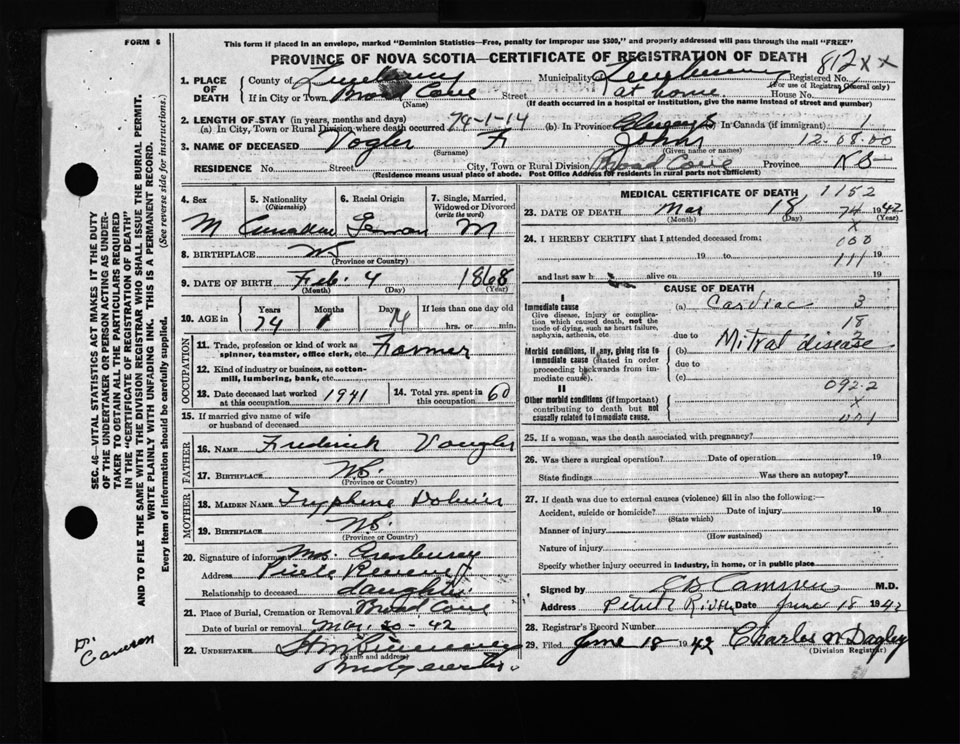 FORM 6
This form if placed in an envelope, marked "Dominion Statistics—Free, penalty for improper use $300," and properly addressed will pass through the mail "FREE"
PROVINCE OF NOVA SCOTIA—CERTIFICATE OF REGISTRATION OF DEATH
812 x x
1. PLACE OF DEATH
County of Lunenburg Municipality Lunenburg Registered No.
(For use of Registrar General only)
If in City or Town Broad Cove Street at home House No.
(Name) (If death occurred in a hospital or institution, give the name instead of street and number)
2. LENGTH OF STAY (in years, months and days)
(a) In City, Town or Rural Division where death occurred 74-1-14 (b) In Province Always In Canada (if immigrant) 1
3. NAME OF DECEASED Vogler John 12.08.00
(Surname) (Given name or names)
RESIDENCE No. Street City, Town or Rural Division Broad Cove Province NS
(Residence means usual place of abode. Post Office Address for residents in rural parts not sufficient)
SEC. 46—VITAL STATISTICS ACT MAKES IT THE DUTY
OF THE UNDERTAKER OR PERSON ACTING AS UNDERTAKER
TO OBTAIN ALL THE PARTICULARS REQUIRED
IN THE "CERTIFICATE OF REGISTRATION OF DEATH"
AND TO FILE THE SAME WITH THE DIVISION REGISTRAR WHO SHALL ISSUE THE BURIAL PERMIT.
WRITE PLAINLY WITH UNFADING INK. THIS IS A PERMANENT RECORD.
Every item of information should be carefully supplied. (See reverse side for instructions.)
4. Sex 5. Nationality (Citizenship) 6. Racial Origin 7. Single, Married, Widowed or Divorced (write the word)
M Canadian German M
8. BIRTHPLACE NS
(Province or Country)
9. DATE OF BIRTH Feb. 4 1868
(Month) (Day) (Year)
10. AGE in Years Months Days If less than one day old
74 1 14 hrs. or min.
OCCUPATION
11. Trade, profession or kind of work as spinner, teamster, office clerk, etc. Farmer
12. Kind of industry or business, as cotton-mill, lumbering, bank, etc.
13. Date deceased last worked at this occupation 1941 14. Total yrs. spent in this occupation 60
15. If married give name of wife or husband of deceased
FATHER
16. NAME Frederick Vaugler
17. BIRTHPLACE N.S.
(Province or Country)
MOTHER
18. MAIDEN NAME Tryphene
19. BIRTHPLACE N.S.
(Province or Country)
20. Signature of informant Mrs.
Address
Relationship to deceased daughter
21. Place of Burial, Cremation or Removal Broad Cove
Date of burial or removal Mar. 20-42
22. UNDERTAKER
(Name and address)
Dr Cameron
MEDICAL CERTIFICATE OF DEATH 1152
23. DATE OF DEATH Mar 18 74 1942
(Month) (Day) (Year)
x
24. I HEREBY CERTIFY that I attended deceased from: 000
19 to 111 19
and last saw h alive on 19
CAUSE OF DEATH
I
Immediate cause (a) Cardiac 3
Give disease, injury or complication which caused death, not the mode of dying, such as heart failure, asphyxia, asthenia, etc. 18
due to Mitral disease
Morbid conditions, if any, giving rise to immediate cause (stated in order proceeding backwards from immediate cause). (b)
due to
(c)
II 092.2
Other morbid conditions (if important) contributing to death but not causally related to immediate cause. x
001
25. If a woman, was the death associated with pregnancy?
26. Was there a surgical operation? Date of operation 19
State findings Was there an autopsy?
27. If death was due to external causes (violence) fill in also the following:—
Accident, suicide or homicide? Date of injury 19
(State which)
Manner of injury
(How sustained)
Nature of injury
Specify whether injury occurred in industry, in home, or in public place
Signed by Cameron M.D.
Address Petite Riviere Date June 18 1942
28. Registrar's Record Number
29. Filed June 18 1942 Charles N Dagley
(Division Registrar)